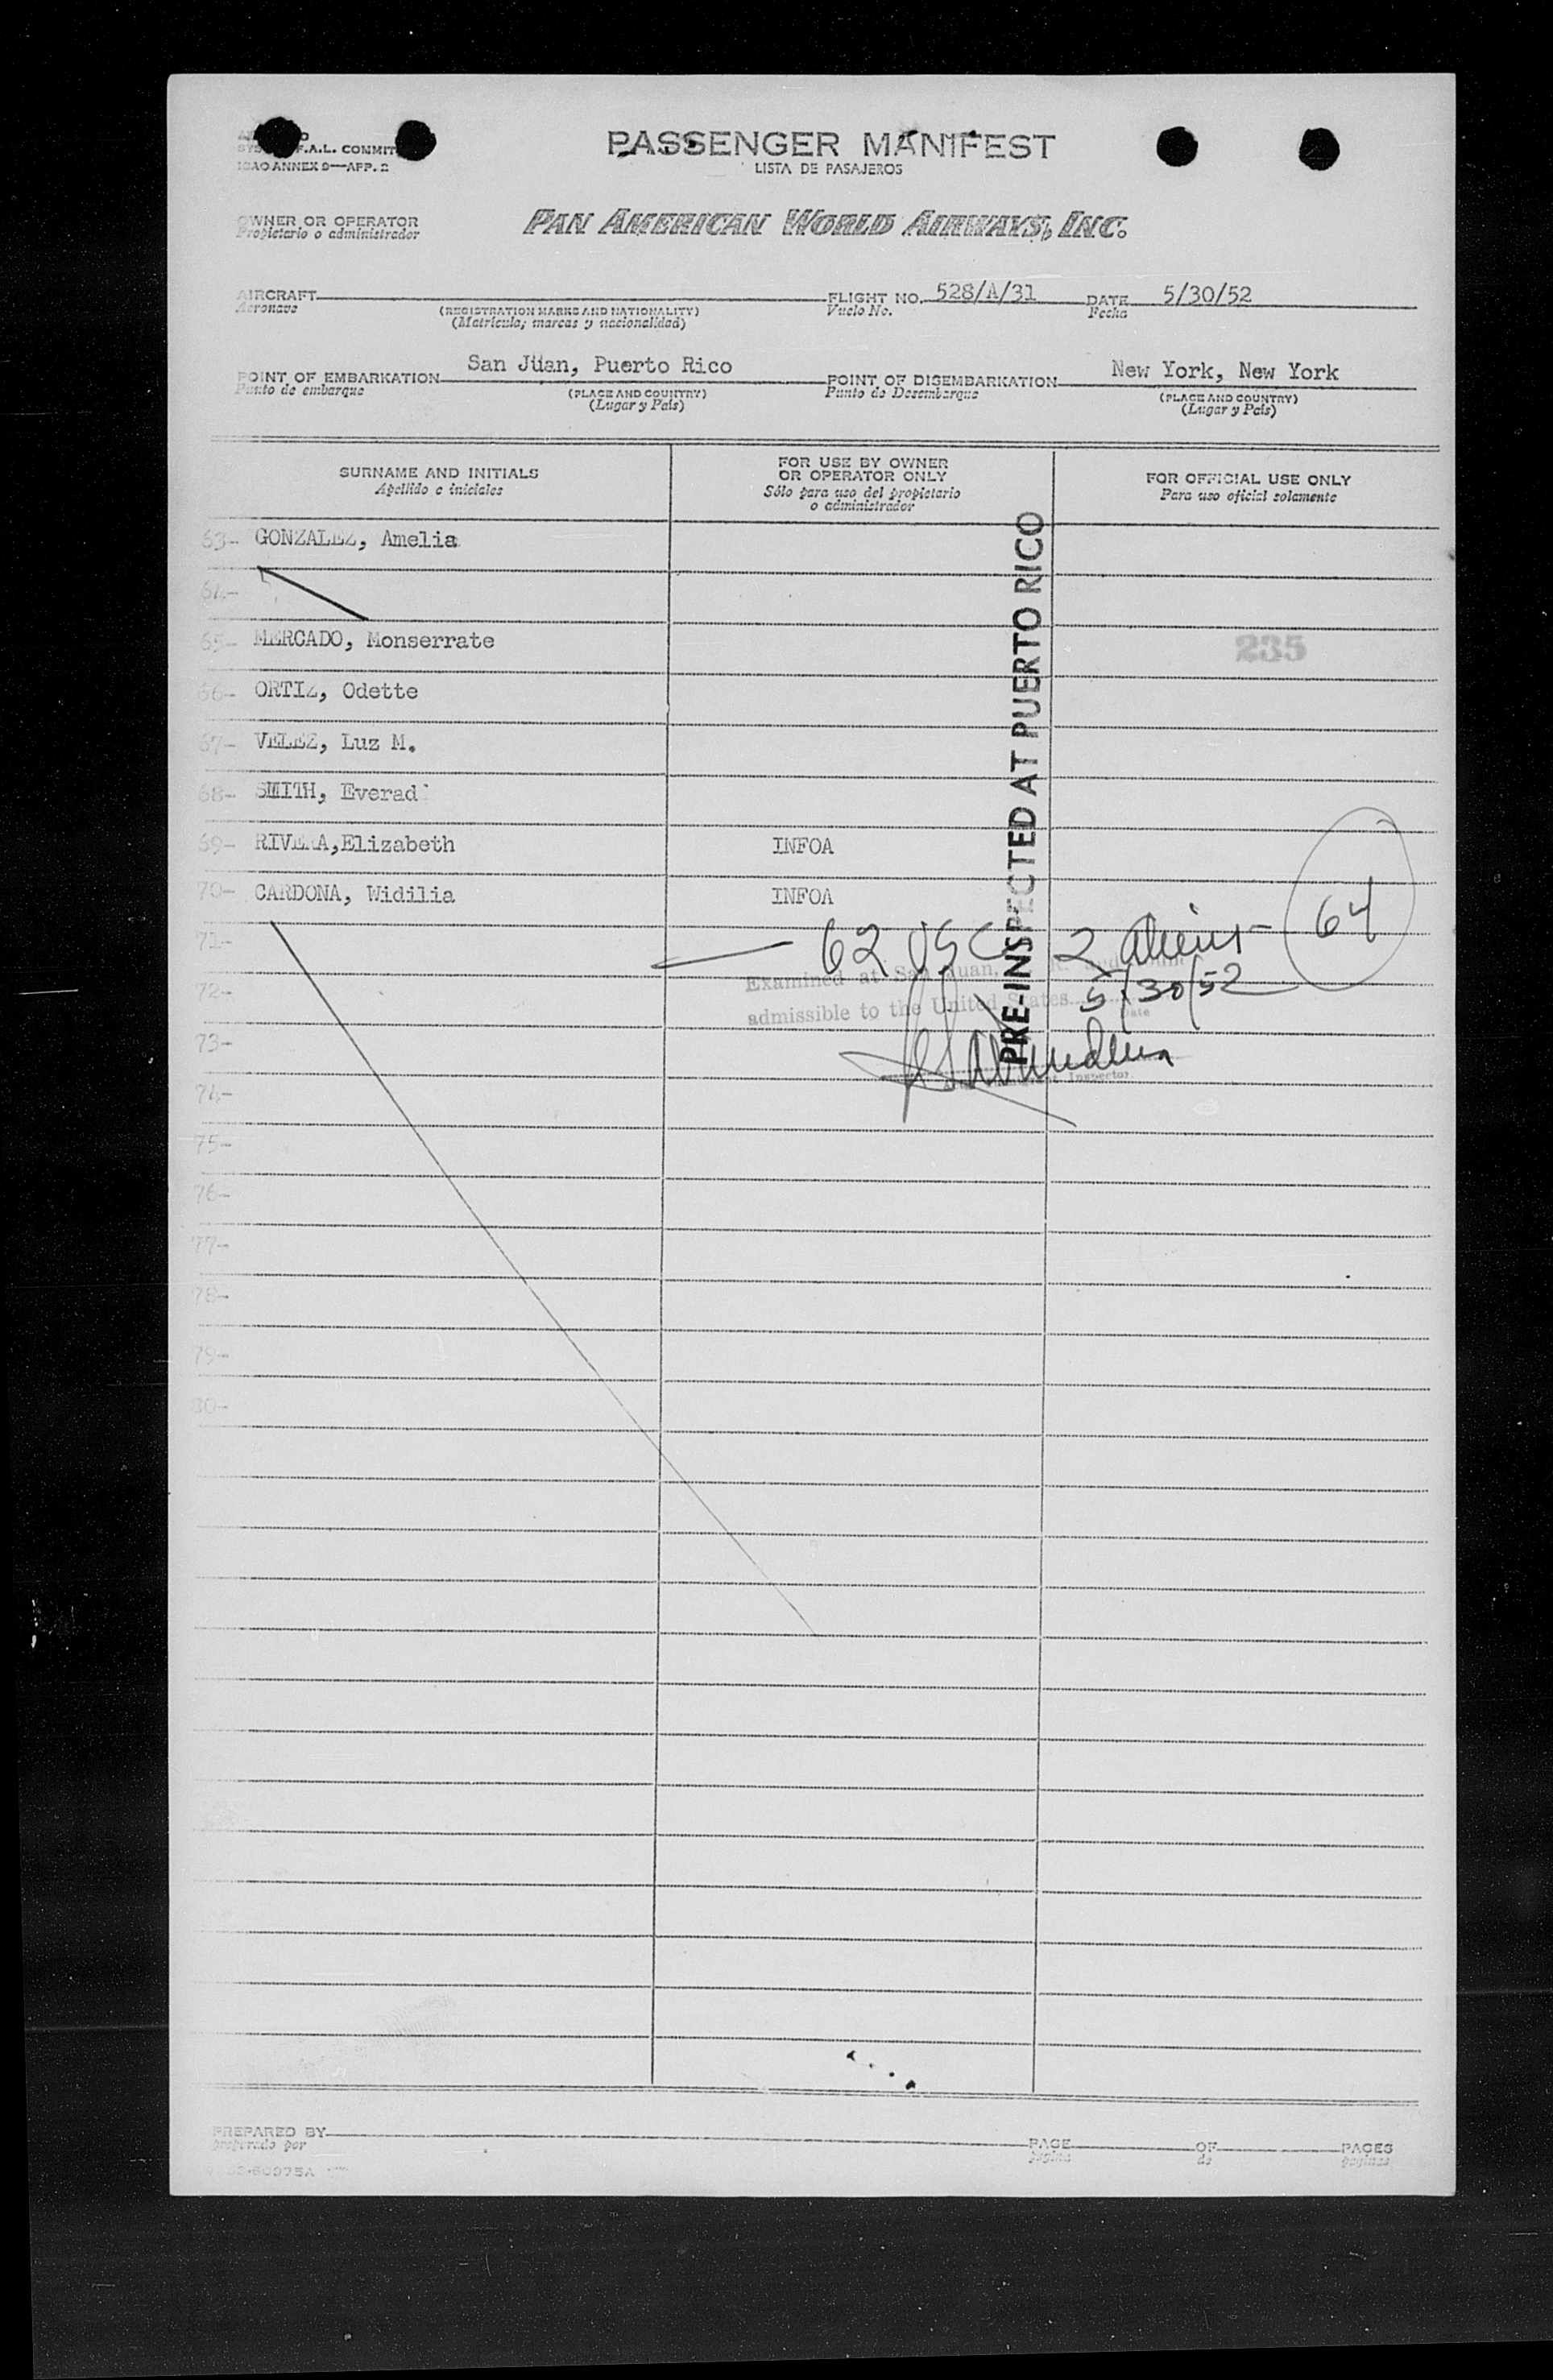 PASSENGER MANIFEST
LISTA DE PASAJEROS
F.A.L. COMMIT
ICAO ANNEX 9—APP. 2
OWNER OR OPERATOR
Propietario o administrador
PAN AMERICAN WORLD AIRWAYS, INC.
AIRCRAFT
Aeronave
(REGISTRATION MARKS AND NATIONALITY)
(Matrícula; marcas y nacionalidad)
FLIGHT NO. 528/A/31
Vuelo No.
DATE 5/30/52
Fecha
POINT OF EMBARKATION San Juan, Puerto Rico
Punto de embarque
(PLACE AND COUNTRY)
(Lugar y País)
POINT OF DISEMBARKATION New York, New York
Punto de Desembarque
(PLACE AND COUNTRY)
(Lugar y País)
SURNAME AND INITIALS
Apellido e iniciales
FOR USE BY OWNER
OR OPERATOR ONLY
Sólo para uso del propietario
o administrador
FOR OFFICIAL USE ONLY
Para uso oficial solamente
63- GONZALEZ, Amelia
64-
65- MERCADO, Monserrate
235
66- ORTIZ, Odette
67- VELEZ, Luz M.
68- SMITH, Everad
69- RIVERA,Elizabeth INFOA
70- CARDONA, Widilia INFOA
PRE-INSPECTED AT PUERTO RICO
71-
— 62 USC 2 aliens - 64
Examined at San Juan,
72-
5/30/52
admissible to the United States
Date
73-
Inspector
74-
75-
76-
77-
78-
79-
80-
PREPARED BY
preparado por
PAGE OF PAGES
página de páginas